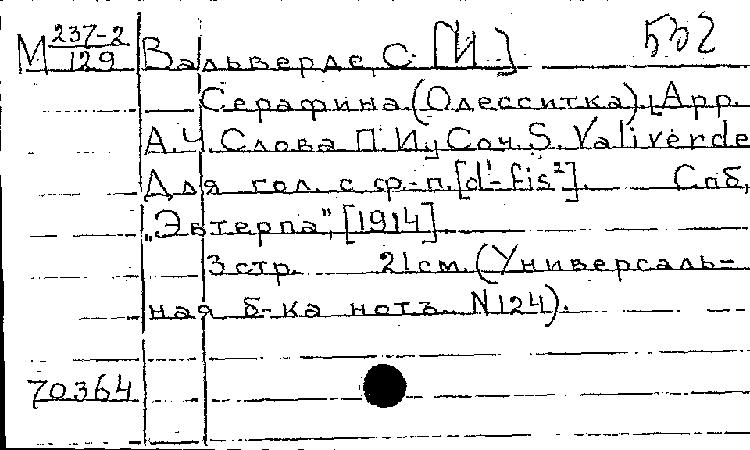 М 237-2/129 Вальверде, С. [И.] 532
Серафина (Одесситка). [Арр.
А.Ч. Слова П. И. Соч. S. Valiverde
Для гол. с ф-п. [d¹-fis²]. Спб,
„Эвтерпа", [1914].
3 стр. 21см. (Универсаль-
ная б-ка нотъ. N124).
70364